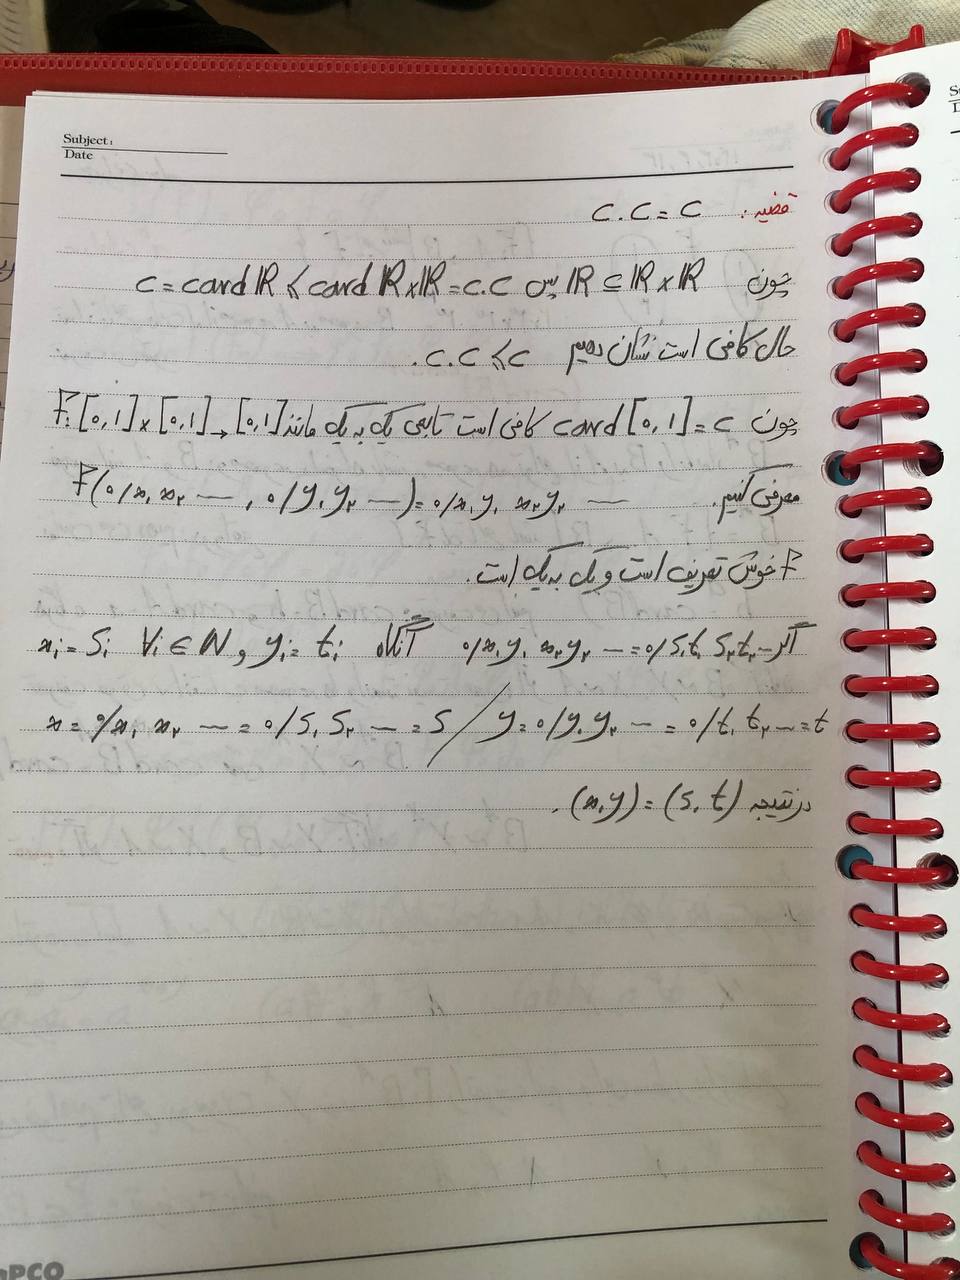 Subject:
Date
قضیه: c.c = c
چون ℝ ⊆ ℝ×ℝ پس c = card ℝ ≤ card ℝ×ℝ = c.c
حال کافی است نشان دهیم c.c ≤ c.
چون card [0,1] = c کافی است تابعی یک به یک مانند F: [0,1] × [0,1] → [0,1]
معرفی کنیم. F(0/x₁x₂ ... , 0/y₁y₂ ...) = 0/x₁y₁x₂y₂ ...
F خوش تعریف است و یک به یک است.
اگر 0/x₁y₁x₂y₂ ... = 0/s₁t₁s₂t₂ ... آنگاه xᵢ = sᵢ ∀i ∈ N و yᵢ = tᵢ
x = 0/x₁x₂ ... = 0/s₁s₂ ... = s / y = 0/y₁y₂ ... = 0/t₁t₂ ... = t
در نتیجه (x,y) = (s,t).